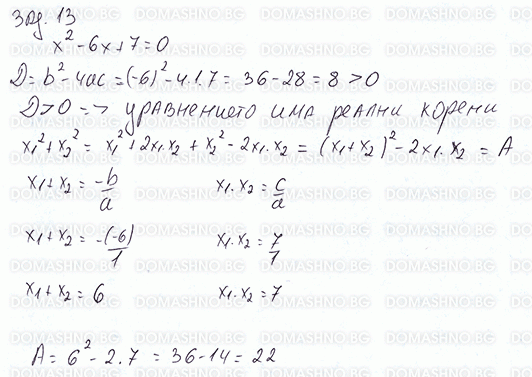 Зад. 13
x² - 6x + 7 = 0
D = b² - 4ac = (-6)² - 4.1.7 = 36 - 28 = 8 > 0
D > 0 => уравнението има реални корени
x₁² + x₂² = x₁² + 2x₁.x₂ + x₂² - 2x₁.x₂ = (x₁ + x₂)² - 2x₁.x₂ = A
x₁ + x₂ = -b/a   x₁.x₂ = c/a
x₁ + x₂ = -(-6)/1   x₁.x₂ = 7/1
x₁ + x₂ = 6   x₁.x₂ = 7
A = 6² - 2.7 = 36 - 14 = 22
DOMASHNO.BG